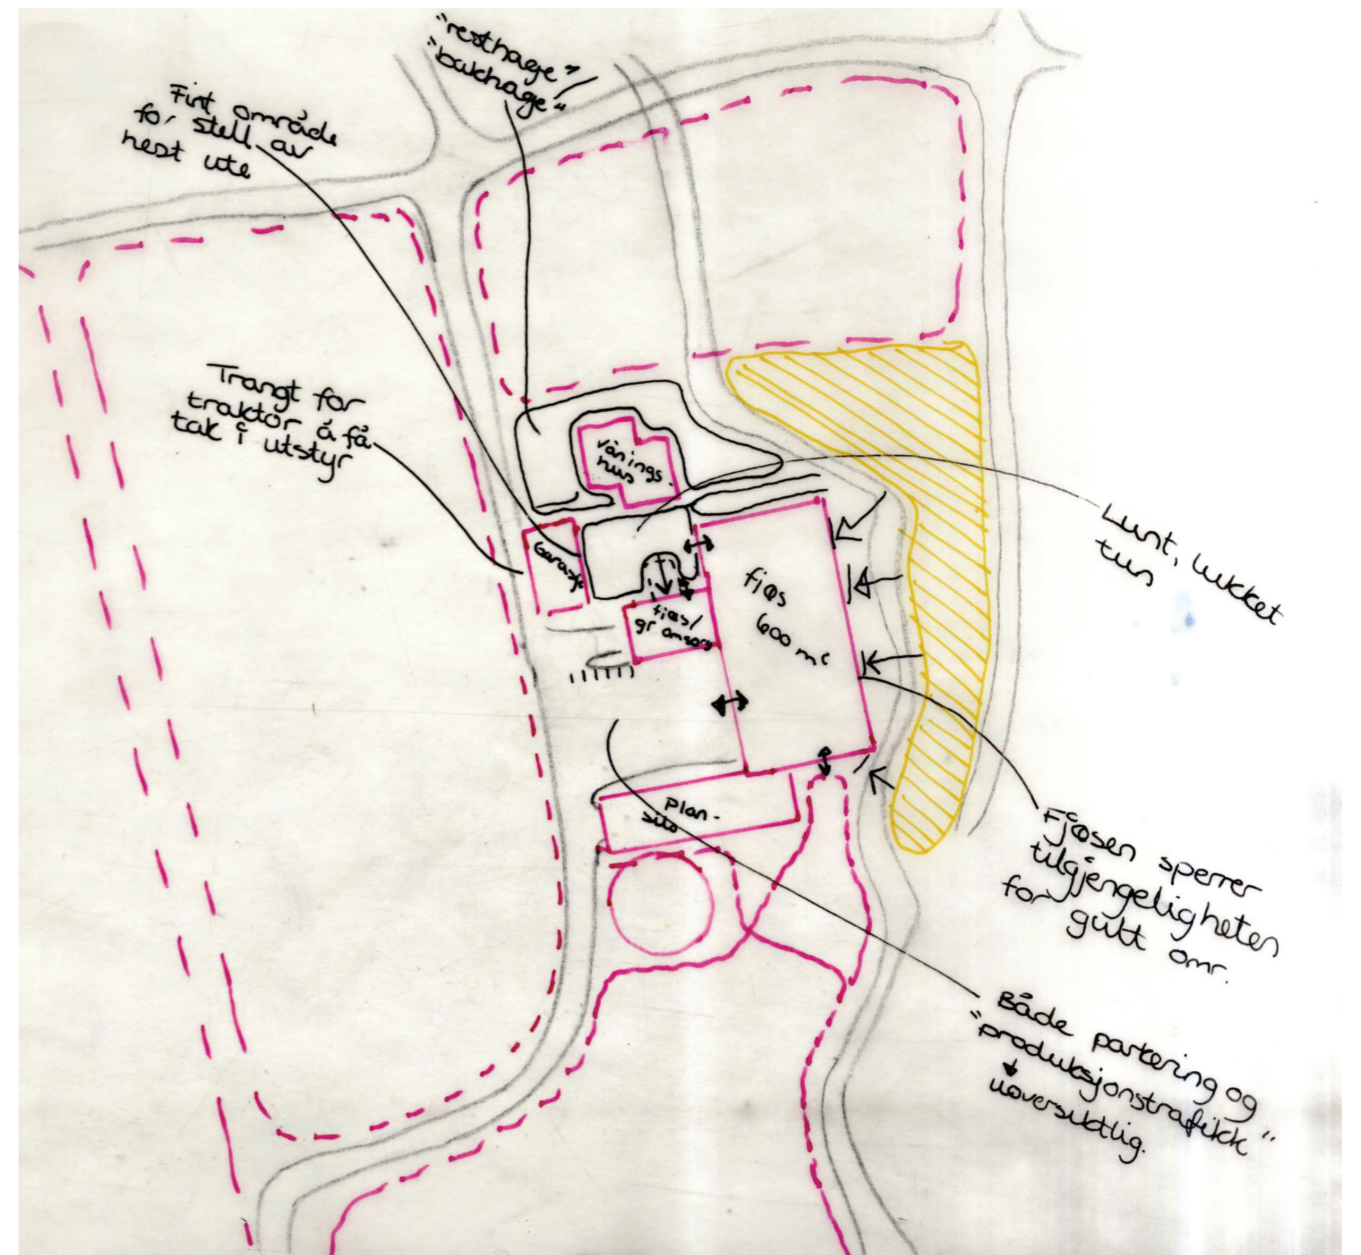 "resthage"/
"bakhage"
Fint område
for stell av
hest ute
Trangt for
traktor å få
tak i utstyr
Vånings
hus
Garasje
fjøs/
gr omsorg
fjøs
600 m²
Plan-
silo
Lunt, lukket
tun
Fjøsen sperrer
tilgjengeligheten
for gult omr.
Både parkering og
"produksjonstrafikk"
uoversiktlig.